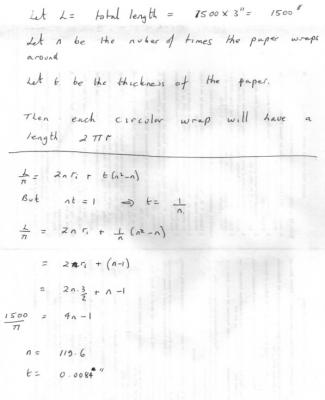 Let L = total length = 1500 × 3" = 1500"
Let n be the nuber of times the paper wraps
around
Let t be the thickness of the paper.
Then each circular wrap will have a
length 2πr
L/π = 2n rᵢ + t(n²-n)
But nt = 1 ⇒ t = 1/n.
L/π = 2n rᵢ + 1/n (n²-n)
= 2n rᵢ + (n-1)
= 2n · 3/2 + n - 1
1500/π = 4n - 1
n = 119.6
t = 0.0084"